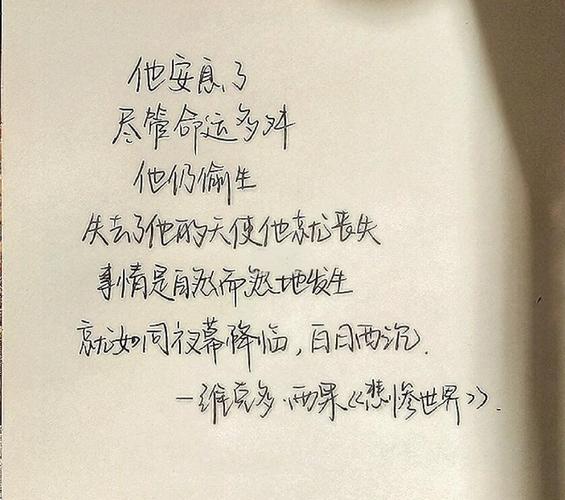 他安息了
尽管命运多舛
他仍偷生
失去了他的天使他就丧失
事情是自然而然地发生
就如同夜幕降临，白日西沉.
—维克多·雨果《悲惨世界》.